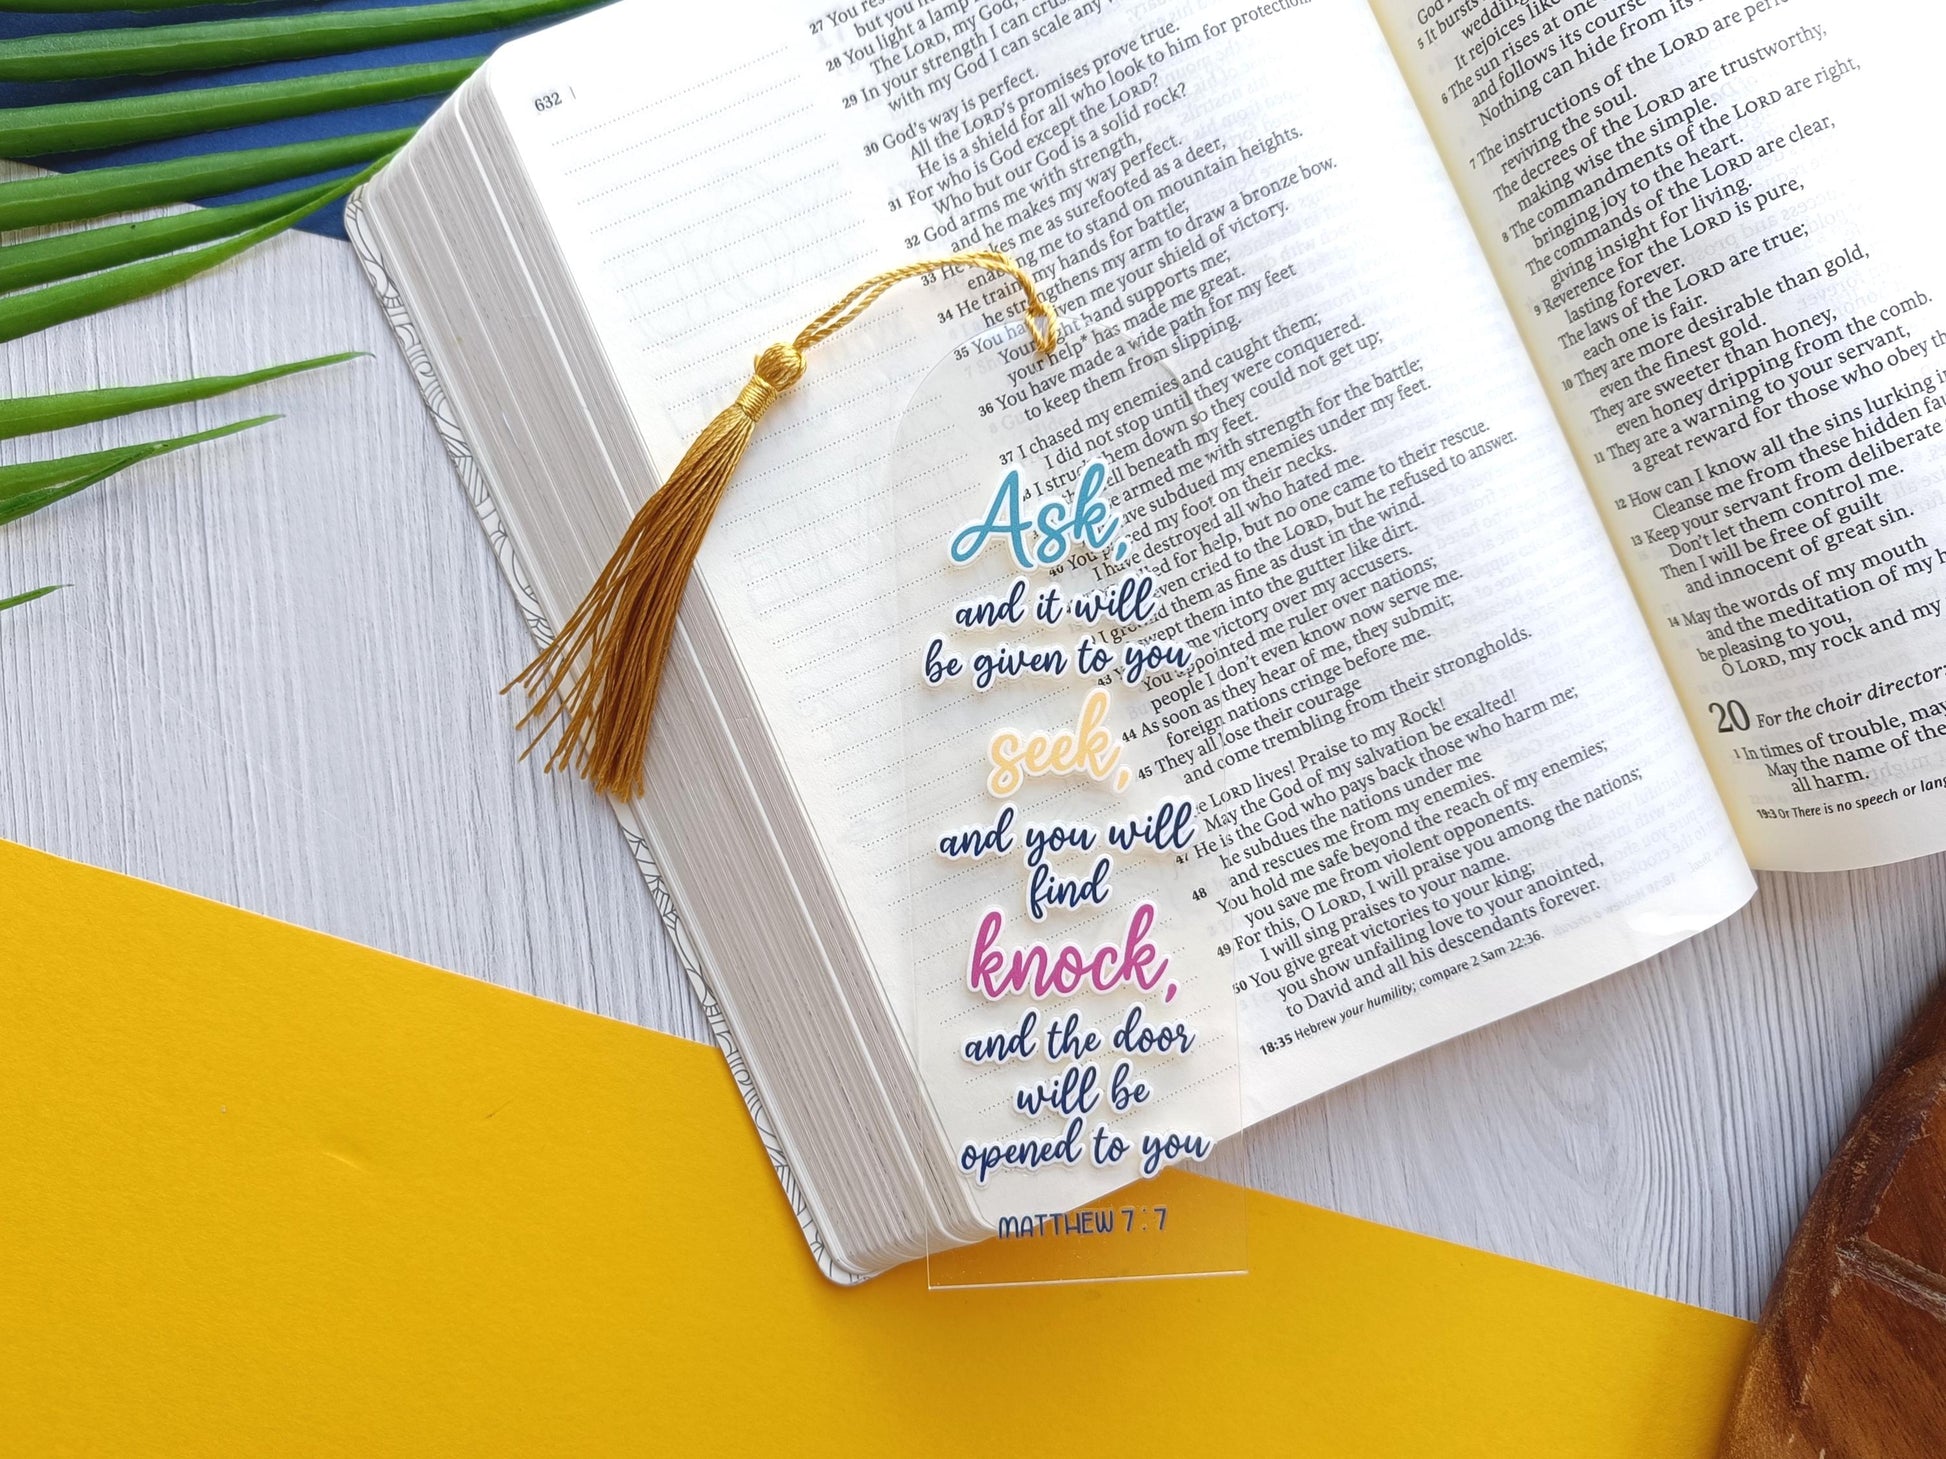 632 |
27 You
but you
28 You light a lamp
The LORD, my God,
29 In your strength I can crush
with my God I can scale any
30 God's way is perfect.
All the LORD's promises prove true.
He is a shield for all who look to him for protection.
31 For who is God except the LORD?
Who but our God is a solid rock?
32 God arms me with strength,
and he makes my way perfect.
33 He kes me as surefooted as a deer,
en ing me to stand on mountain heights.
34 He train my hands for battle;
he str gthens my arm to draw a bronze bow.
35 You ha ven me your shield of victory.
Your ht hand supports me;
your help* has made me great.
36 You have made a wide path for my feet
to keep them from slipping.
37 I chased my enemies and caught them;
I did not stop until they were conquered.
I struck them down so they could not get up;
ell beneath my feet.
e armed me with strength for the battle;
ve subdued my enemies under my feet.
40 You p ced my foot on their necks.
I have destroyed all who hated me.
lled for help, but no one came to their rescue.
even cried to the LORD, but he refused to answer.
I gro d them as fine as dust in the wind.
swept them into the gutter like dirt.
43 me victory over my accusers.
You appointed me ruler over nations;
people I don't even know now serve me.
44 As soon as they hear of me, they submit;
foreign nations cringe before me.
45 They all lose their courage
and come trembling from their strongholds.
e LORD lives! Praise to my Rock!
May the God of my salvation be exalted!
47 He is the God who pays back those who harm me;
he subdues the nations under me
48 and rescues me from my enemies.
You hold me safe beyond the reach of my enemies;
you save me from violent opponents.
49 For this, O LORD, I will praise you among the nations;
I will sing praises to your name.
50 You give great victories to your king;
you show unfailing love to your anointed,
to David and all his descendants forever.
18:35 Hebrew your humility; compare 2 Sam 22:36.
Ask,
and it will
be given to you
seek,
and you will
find
knock,
and the door
will be
opened to you
MATTHEW 7:7
God
5 It bursts
wedding
It rejoices like
6 The sun rises at one
and follows its course
Nothing can hide from its
7 The instructions of the LORD are perfe
reviving the soul.
The decrees of the LORD are trustworthy,
making wise the simple.
8 The commandments of the LORD are right,
bringing joy to the heart.
The commands of the LORD are clear,
giving insight for living.
9 Reverence for the LORD is pure,
lasting forever.
The laws of the LORD are true;
each one is fair.
10 They are more desirable than gold,
even the finest gold.
They are sweeter than honey,
even honey dripping from the comb.
11 They are a warning to your servant,
a great reward for those who obey th
12 How can I know all the sins lurking i
Cleanse me from these hidden fau
13 Keep your servant from deliberate
Don't let them control me.
Then I will be free of guilt
and innocent of great sin.
14 May the words of my mouth
and the meditation of my h
be pleasing to you,
O LORD, my rock and my
20 For the choir director:
1 In times of trouble, may
May the name of the
all harm.
19:3 Or There is no speech or lang